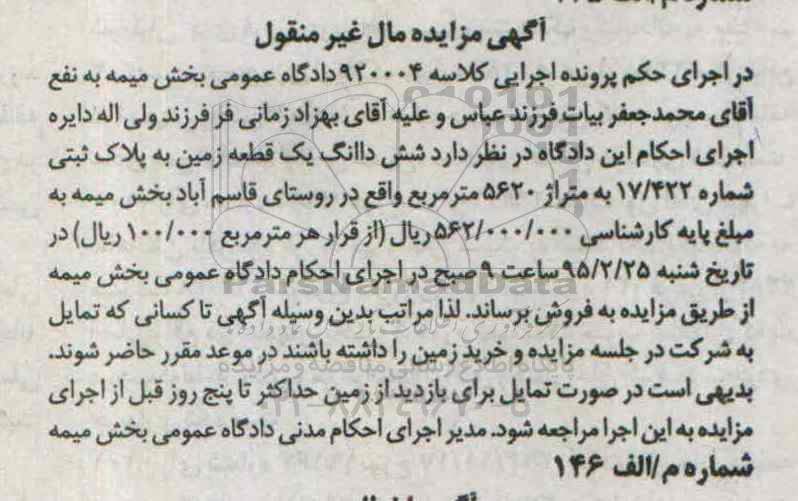 آگهی مزایده مال غیر منقول
در اجرای حکم پرونده اجرایی کلاسه ۹۲۰۰۰۴ دادگاه عمومی بخش میمه به نفع
آقای محمدجعفر بیات فرزند عباس و علیه آقای بهزاد زمانی فر فرزند ولی اله دایره
اجرای احکام این دادگاه در نظر دارد شش داانگ یک قطعه زمین به پلاک ثبتی
شماره ۱۷/۴۲۲ به متراژ ۵۶۲۰ مترمربع واقع در روستای قاسم آباد بخش میمه به
مبلغ پایه کارشناسی ۵۶۲/۰۰۰/۰۰۰ ریال (از قرار هر مترمربع ۱۰۰/۰۰۰ ریال) در
تاریخ شنبه ۹۵/۲/۲۵ ساعت ۹ صبح در اجرای احکام دادگاه عمومی بخش میمه
ParsNamadData
از طریق مزایده به فروش برساند. لذا مراتب بدین وسیله آگهی تا کسانی که تمایل
به شرکت در جلسه مزایده و خرید زمین را داشته باشند در موعد مقرر حاضر شوند.
پایگاه اطلاع رسانی مناقصه و مزایده
بدیهی است در صورت تمایل برای بازدید از زمین حداکثر تا پنج روز قبل از اجرای
مزایده به این اجرا مراجعه شود. مدیر اجرای احکام مدنی دادگاه عمومی بخش میمه
شماره م/الف ۱۴۶